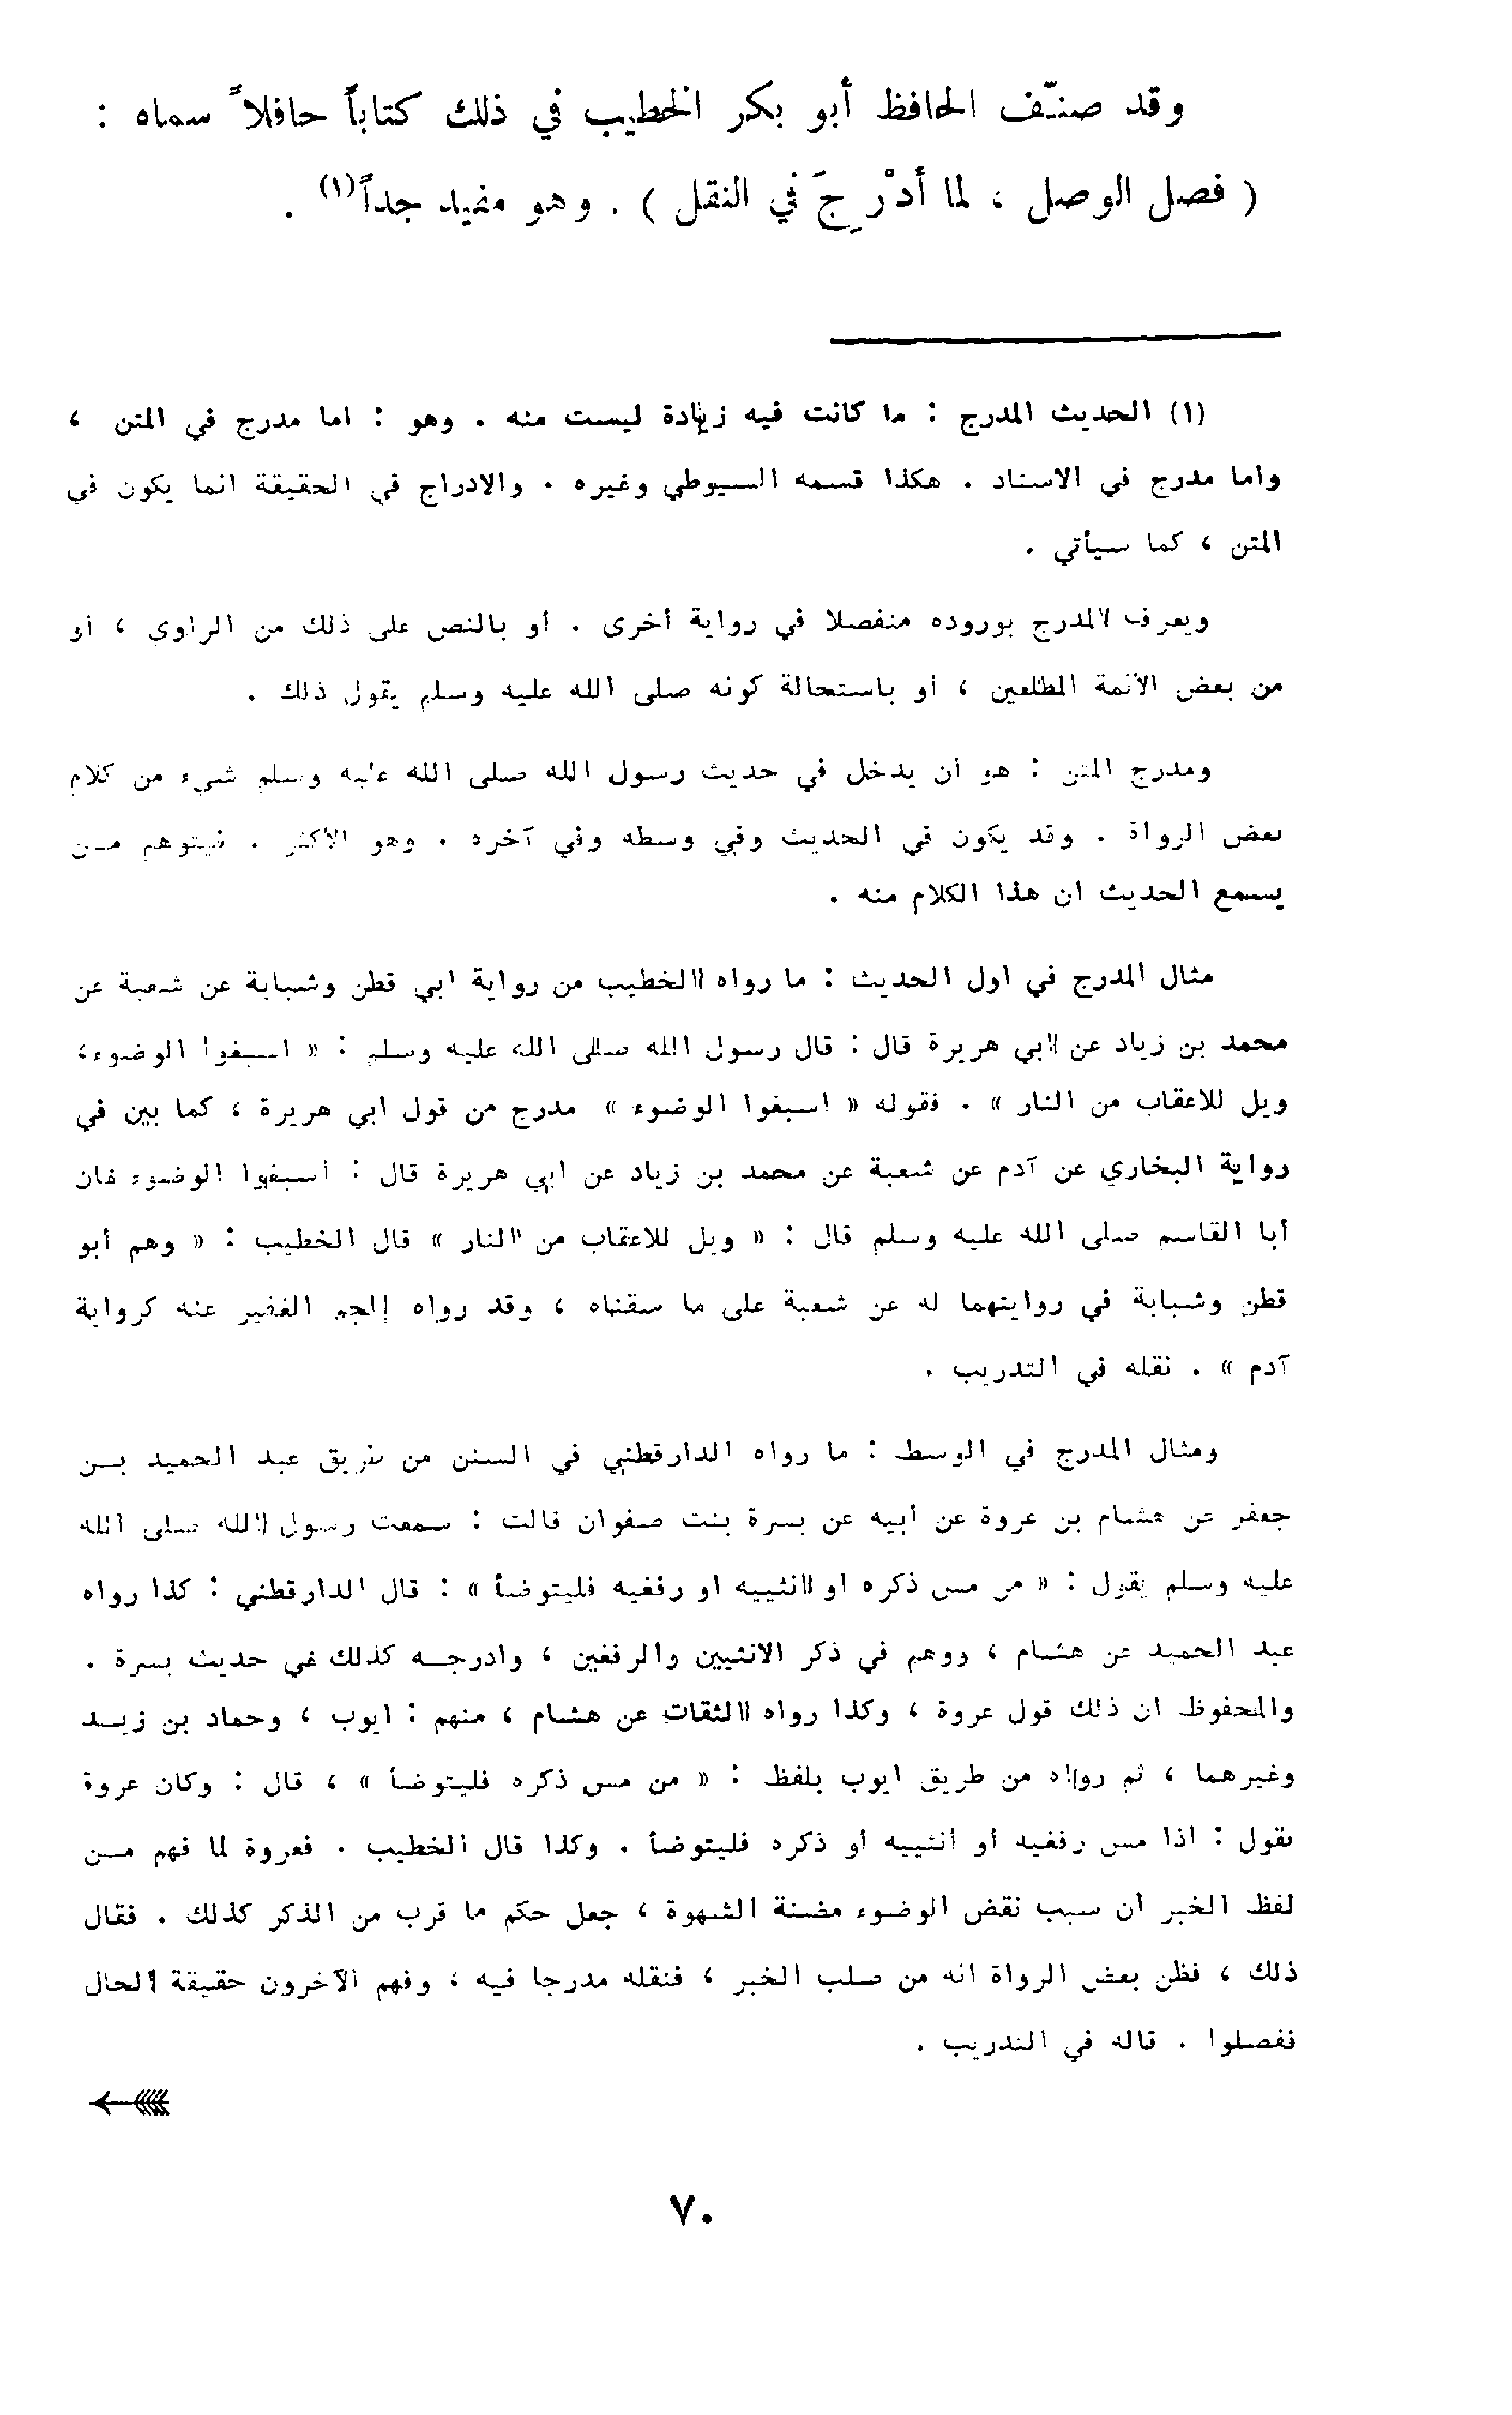 وقد صنّف الحافظ أبو بكر الخطيب في ذلك كتاباً حافلاً سماه :
( فصل الوصل ، لما أدْرِجَ في النقل ) . وهو مفيد جداً(١) .
(١) الحديث المدرج : ما كانت فيه زيادة ليست منه . وهو : اما مدرج في المتن ،
واما مدرج في الاسناد . هكذا قسمه السيوطي وغيره . والادراج في الحقيقة انما يكون في
المتن ، كما سيأتي .
ويعرف المدرج بوروده منفصلا في رواية أخرى . أو بالنص على ذلك من الراوي ، أو
من بعض الائمة المطلعين ، أو باستحالة كونه صلى الله عليه وسلم يقول ذلك .
ومدرج المتن : هو أن يدخل في حديث رسول الله صلى الله عليه وسلم شيء من كلام
بعض الرواة . وقد يكون في الحديث وفي وسطه وفي آخره . وهو الأكثر . فيتوهم مــن
يسمع الحديث ان هذا الكلام منه .
مثال المدرج في اول الحديث : ما رواه الخطيب من رواية ابي قطن وشبابة عن شعبة عن
محمد بن زياد عن ابي هريرة قال : قال رسول الله صلى الله عليه وسلم : « اسبغوا الوضوء،
ويل للاعقاب من النار » . فقوله « اسبغوا الوضوء » مدرج من قول ابي هريرة ، كما بين في
رواية البخاري عن آدم عن شعبة عن محمد بن زياد عن ابي هريرة قال : أسبغوا الوضوء فان
أبا القاسم صلى الله عليه وسلم قال : « ويل للاعقاب من النار » قال الخطيب : « وهم أبو
قطن وشبابة في روايتهما له عن شعبة على ما سقناه ، وقد رواه الجم الغفير عنه كرواية
آدم » . نقله في التدريب .
ومثال المدرج في الوسط : ما رواه الدارقطني في السنن من طريق عبد الحميد بــن
جعفر عن هشام بن عروة عن أبيه عن بسرة بنت صفوان قالت : سمعت رسول الله صلى الله
عليه وسلم يقول : « من مس ذكره او انثييه او رفغيه فليتوضأ » : قال الدارقطني : كذا رواه
عبد الحميد عن هشام ، ووهم في ذكر الانثيين والرفغين ، وادرجــه كذلك في حديث بسرة .
والمحفوظ ان ذلك قول عروة ، وكذا رواه الثقات عن هشام ، منهم : ايوب ، وحماد بن زيــد
وغيرهما ، ثم رواه من طريق ايوب بلفظ : « من مس ذكره فليتوضأ » ، قال : وكان عروة
يقول : اذا مس رفغيه أو أنثييه أو ذكره فليتوضأ . وكذا قال الخطيب . فعروة لما فهم مــن
لفظ الخبر أن سبب نقض الوضوء مضنة الشهوة ، جعل حكم ما قرب من الذكر كذلك . فقال
ذلك ، فظن بعض الرواة انه من صلب الخبر ، فنقله مدرجا فيه ، وفهم الآخرون حقيقة الحال
ففصلوا . قاله في التدريب .
٧٠